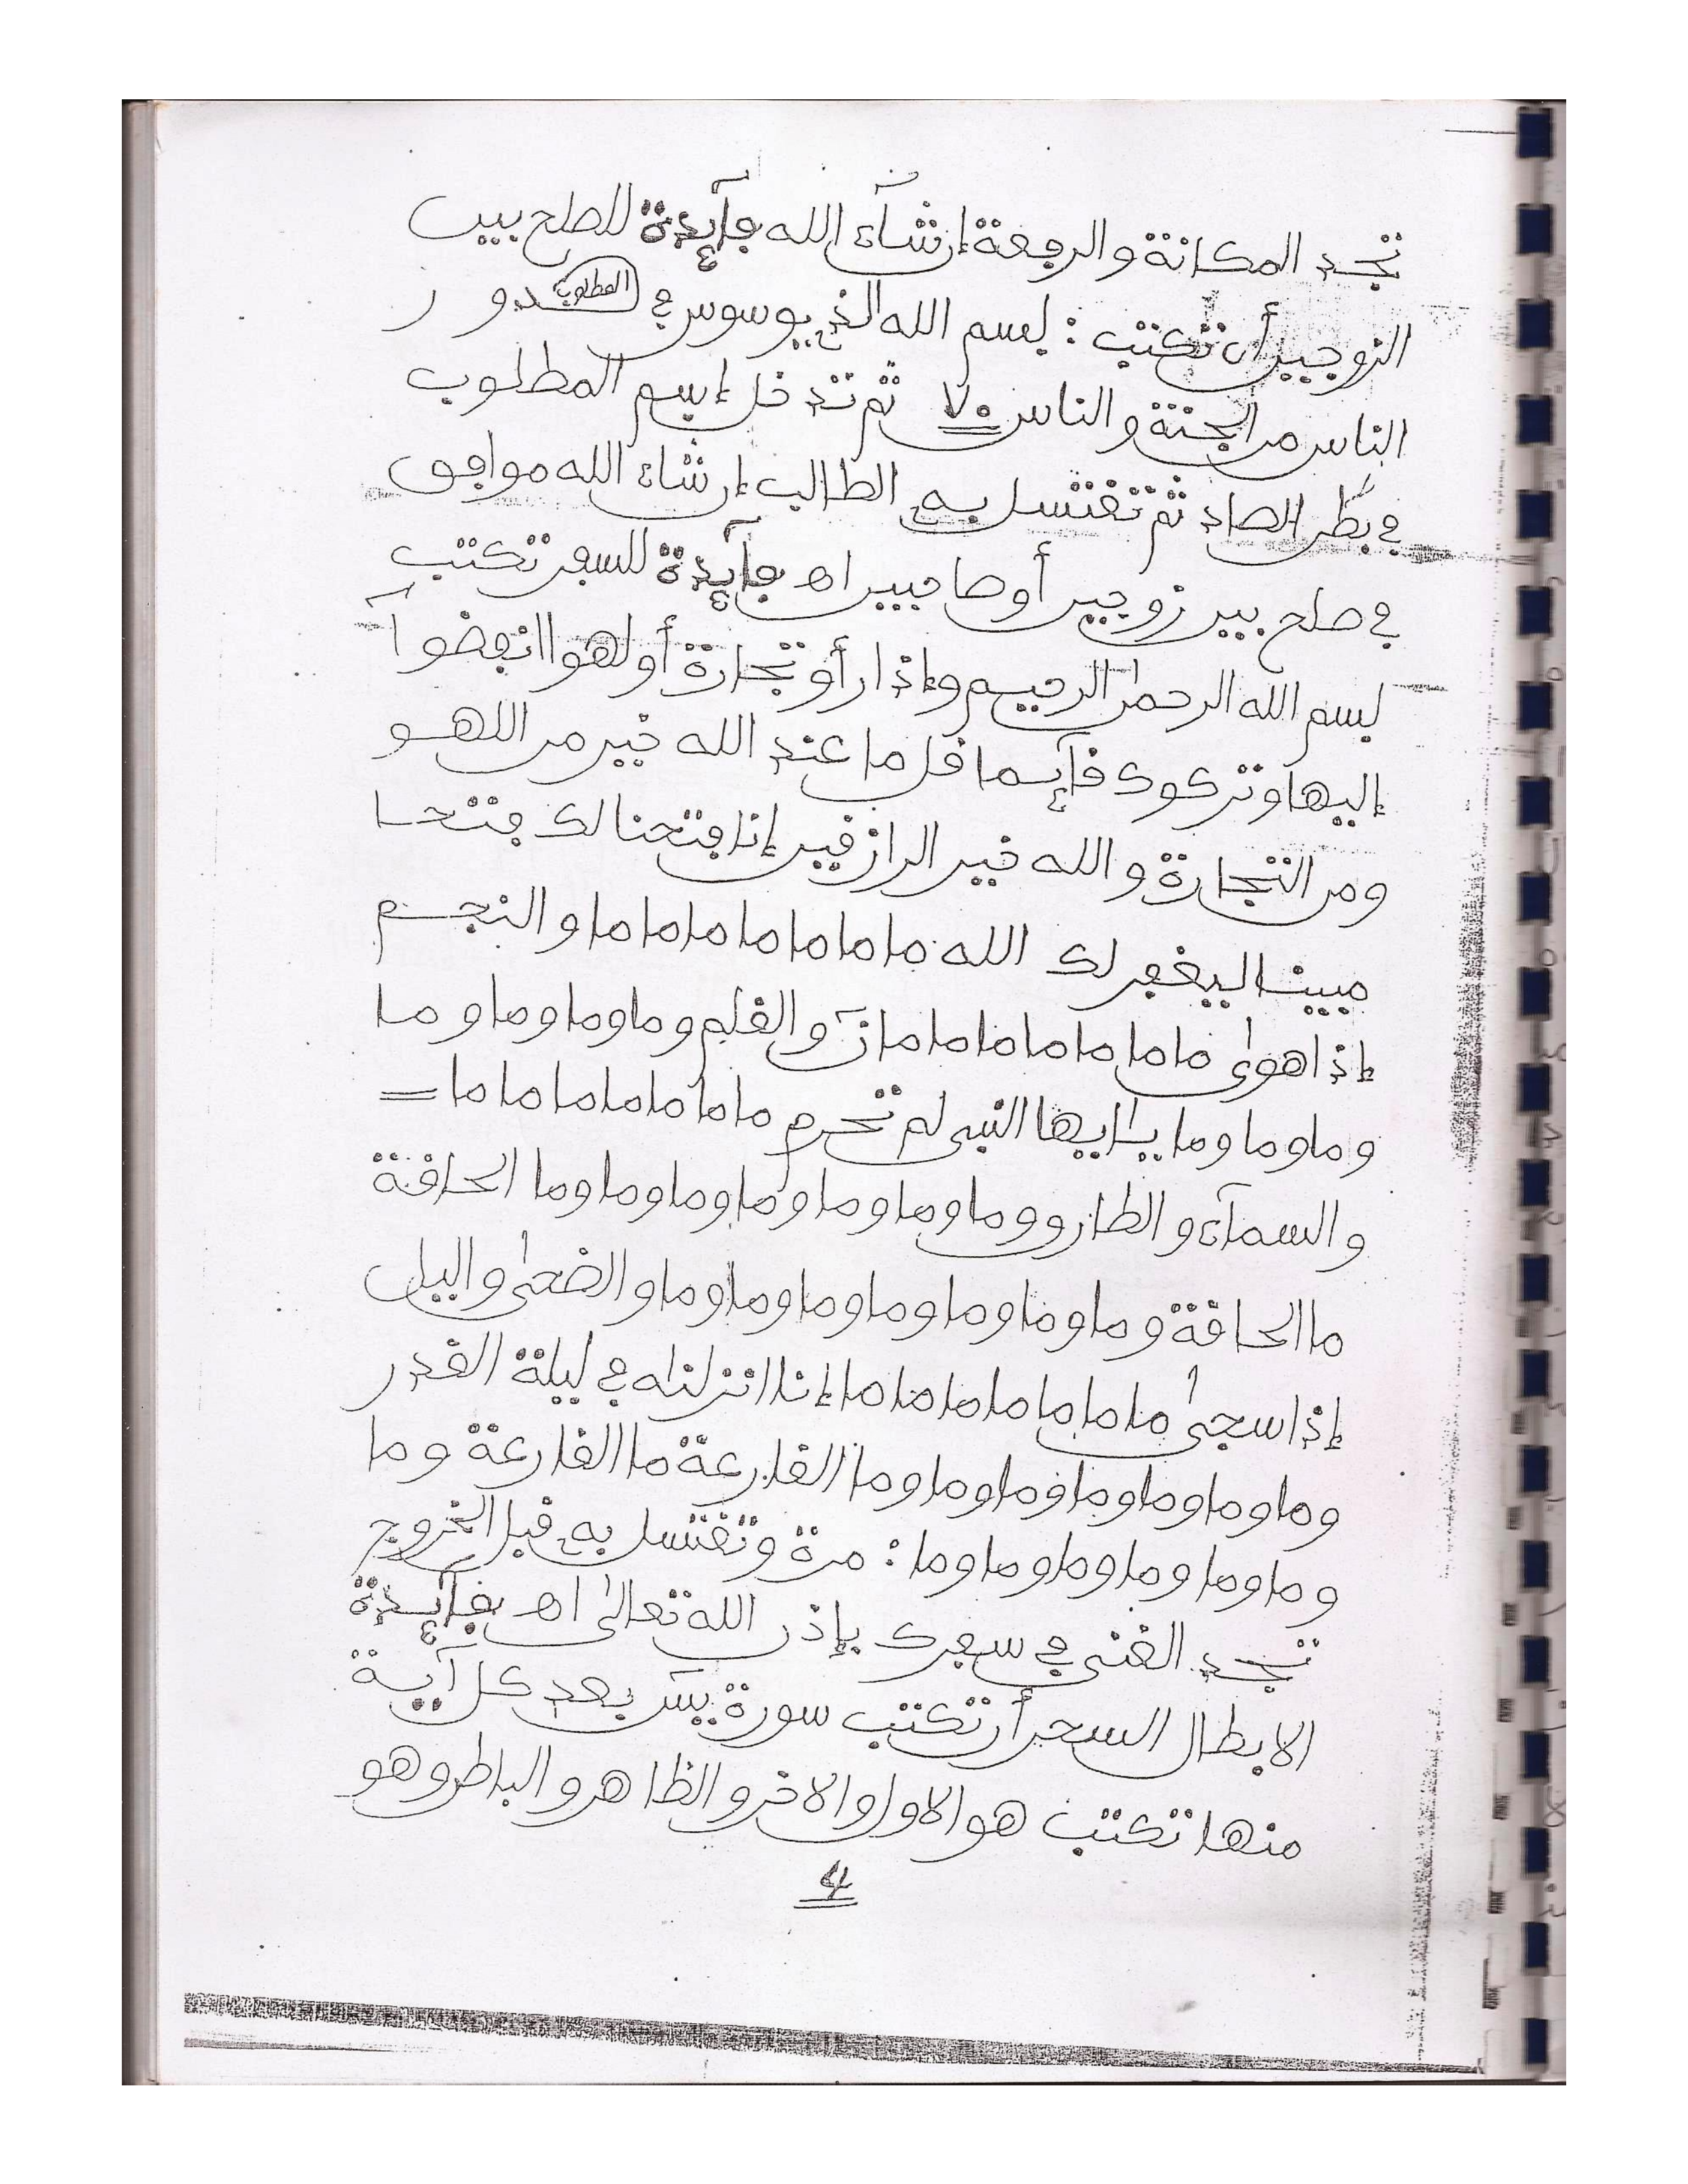 تجد المكانة والرجعة إن شآء الله فآئدة للصلح بين
الزوجين أن تكتب : بسم الله الذي يوسوس في صدور
المطلوب
الناس من الجنة والناس ٧٠ ثم تدخل إسم المطلوب
في بطن الصاد ثم تغتسل به الطالب إن شاء الله موافق
في صلح بين زوجين أو صاحبين اهـ فآئدة للسفر تكتب
بسم الله الرحمن الرحيم وإذا رأو تجارة أو لهوا انفضوآ
إليها وتركوك قآئما قل ما عند الله خير من اللهو
ومن التجارة والله خير الرازقين إنا فتحنا لك فتحا
مبينا ليغفر لك الله ما ما ما ما ما ما ما ما والنجم
إذا هوى ما ما ما ما ما ما ما ما نٓ والقلم وما وما وما وما
وما وما وما يا ايها النبي لم تحرم ما ما ما ما ما ما ما ما =
والسمآء والطارق وما وما وما وما وما وما وما وما الحاقة
ما الحاقة وما وما وما وما وما وما وما وما والضحى واليل
إذا سجى ما ما ما ما ما ما ما ما إنا انزلناه في ليلة القدر
وما وما وما وما وما وما وما القارعة ما القارعة وما
وما وما وما وما وما وما : مرة وتغتسل به قبل الخروج
تجد الغنى في سفرك بإذن الله تعالى اهـ فآئدة
الابطال السحر أن تكتب سورة يسٓ بعد كل آية
منها تكتب هو الاول والاخر والظاهر والباطن وهو
4